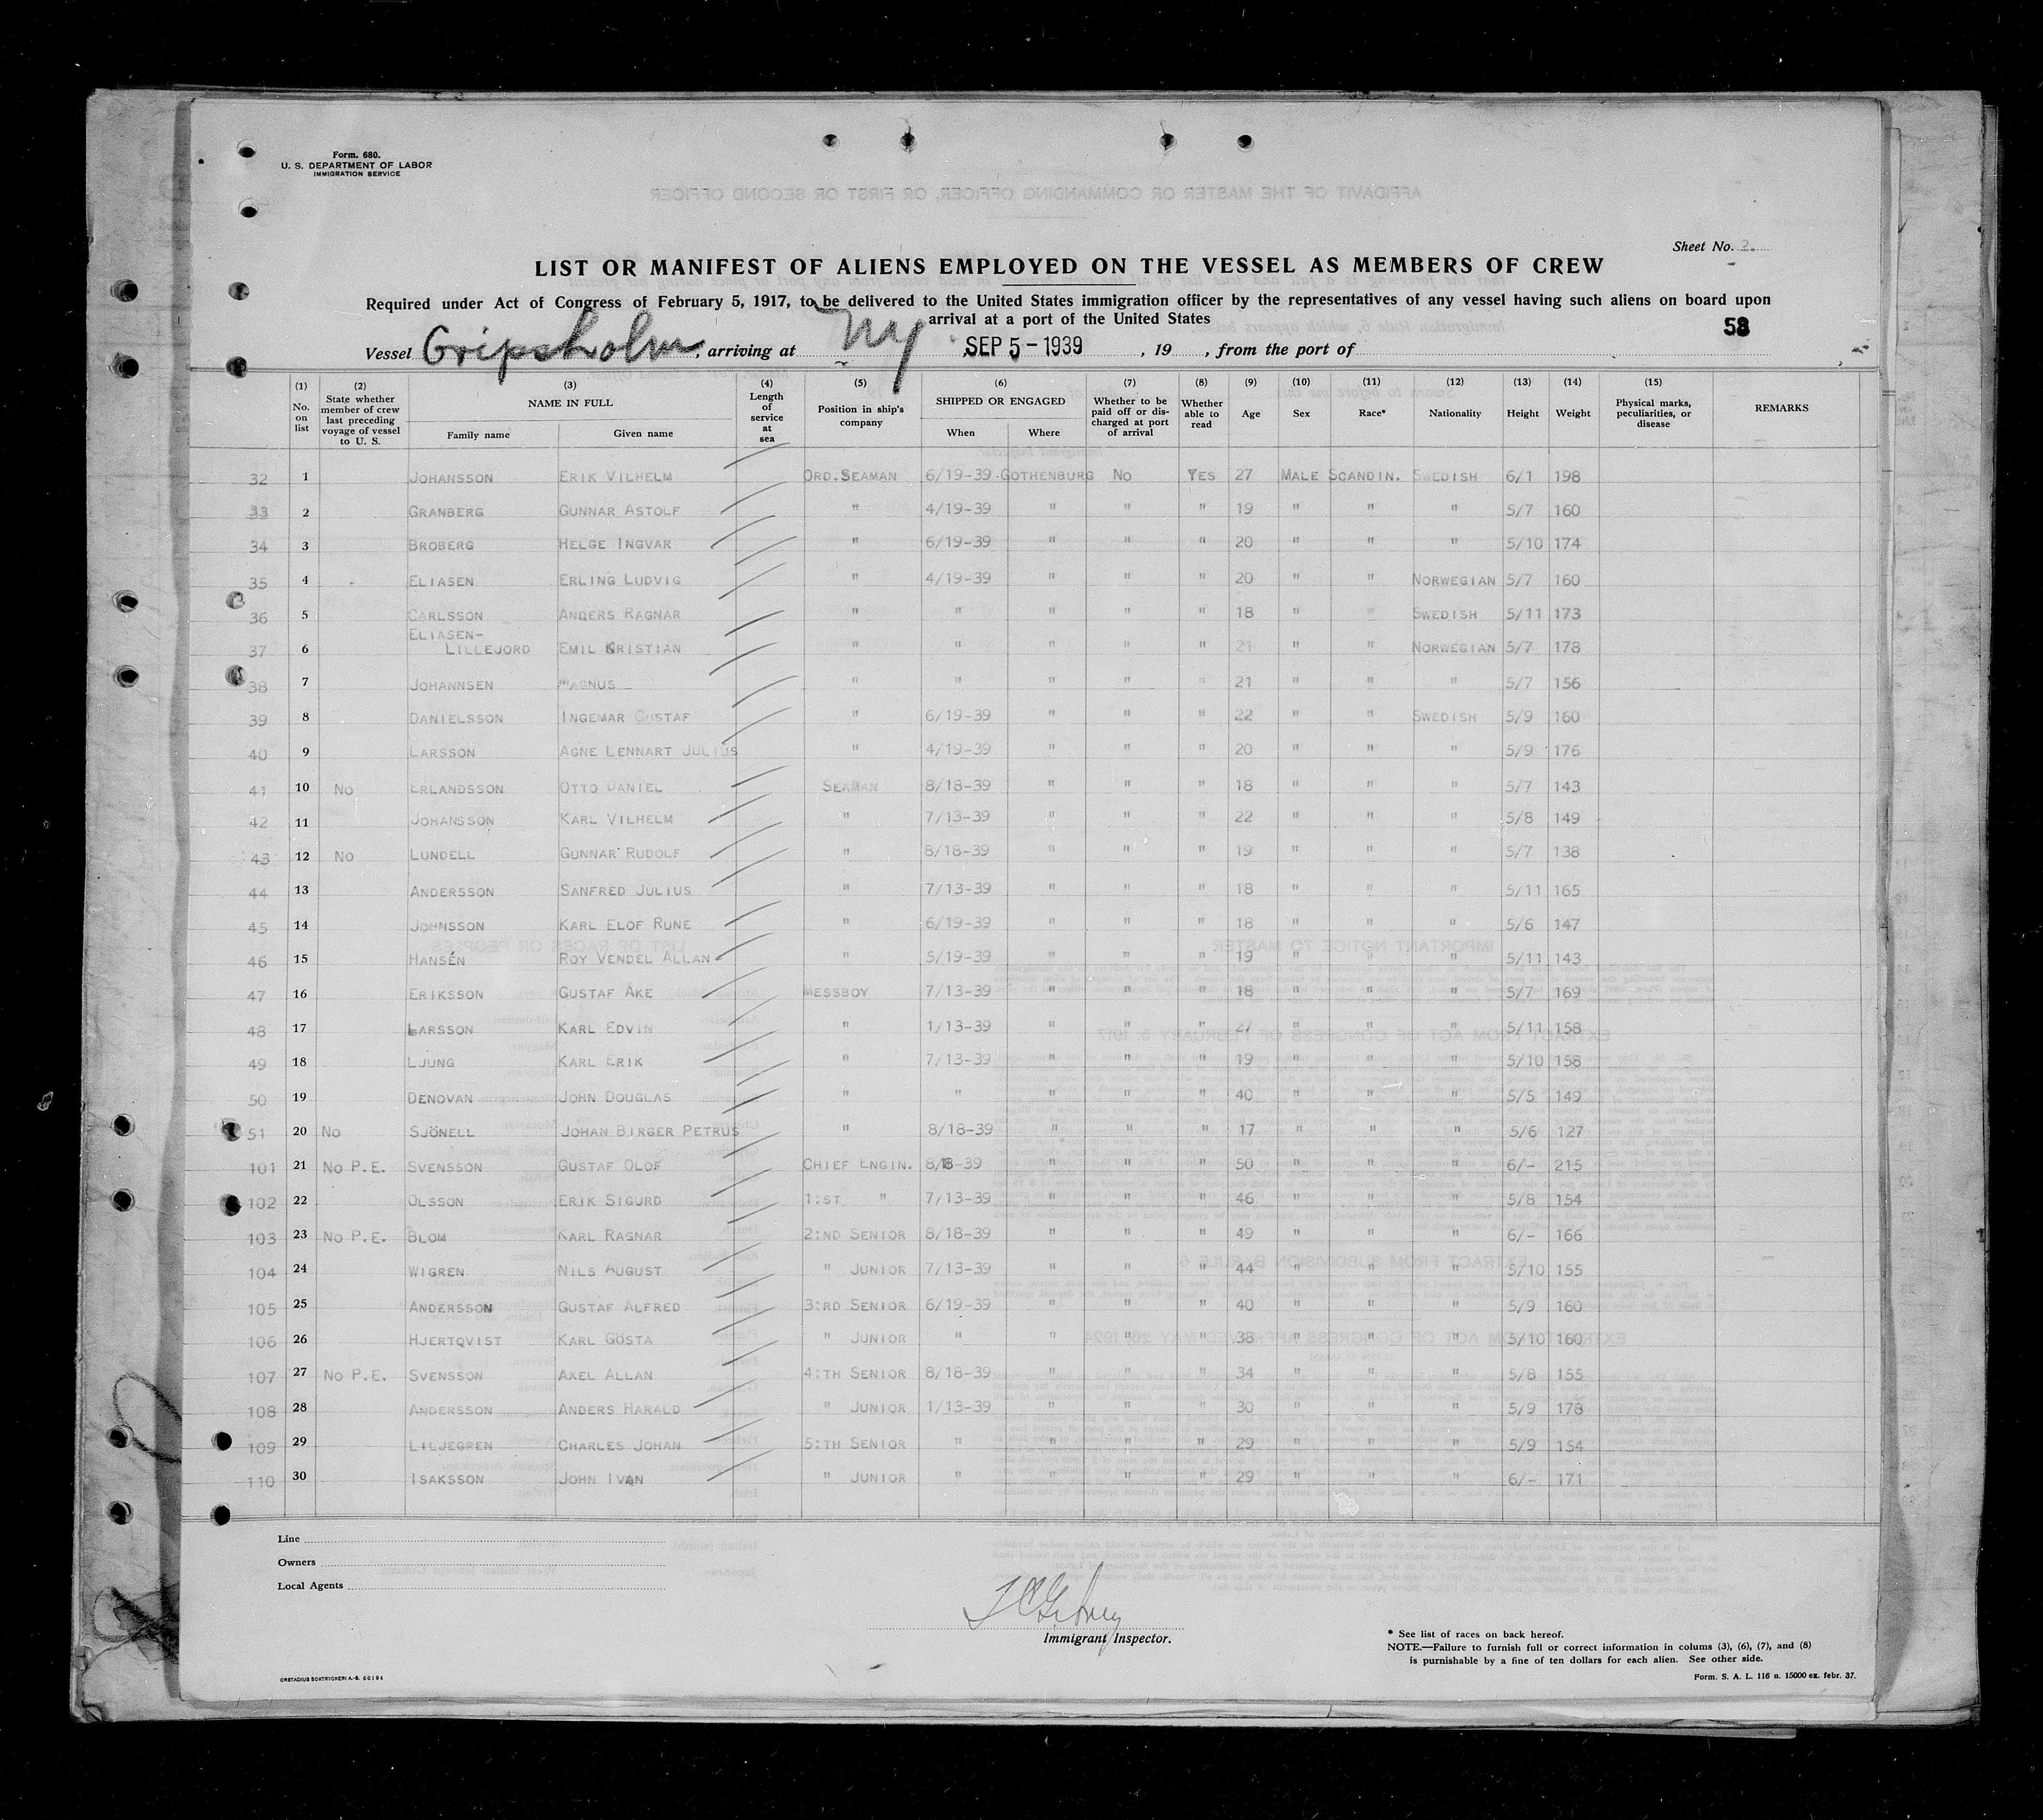 Form. 680.
U. S. DEPARTMENT OF LABOR
IMMIGRATION SERVICE
Sheet No. 2.
LIST OR MANIFEST OF ALIENS EMPLOYED ON THE VESSEL AS MEMBERS OF CREW
Required under Act of Congress of February 5, 1917, to be delivered to the United States immigration officer by the representatives of any vessel having such aliens on board upon
arrival at a port of the United States
58
Vessel Gripsholm, arriving at NY SEP 5 - 1939, 19 , from the port of
(1) No. on list (2) State whether member of crew last preceding voyage of vessel to U. S. (3) NAME IN FULL Family name Given name (4) Length of service at sea (5) Position in ship's company (6) SHIPPED OR ENGAGED When Where (7) Whether to be paid off or dis-charged at port of arrival (8) Whether able to read (9) Age (10) Sex (11) Race* (12) Nationality (13) Height (14) Weight (15) Physical marks, peculiarities, or disease REMARKS
32 1 JOHANSSON ERIK VILHELM ORD. SEAMAN 6/19-39 GOTHENBURG NO YES 27 MALE SCANDIN. SWEDISH 6/1 198
33 2 GRANBERG GUNNAR ASTOLF " 4/19-39 " " " 19 " " " 5/7 160
34 3 BROBERG HELGE INGVAR " 6/19-39 " " " 20 " " " 5/10 174
35 4 ELIASEN ERLING LUDVIG " 4/19-39 " " " 20 " " NORWEGIAN 5/7 160
36 5 CARLSSON ANDERS RAGNAR " " " " " 18 " " SWEDISH 5/11 173
37 6 ELIASEN-LILLEJORD EMIL KRISTIAN " " " " " 21 " " NORWEGIAN 5/7 178
38 7 JOHANNSEN MAGNUS " " " " " 21 " " " 5/7 156
39 8 DANIELSSON INGEMAR GUSTAF " 6/19-39 " " " 22 " " SWEDISH 5/9 160
40 9 LARSSON AGNE LENNART JULIUS " 4/19-39 " " " 20 " " " 5/9 176
41 10 NO ERLANDSSON OTTO DANIEL SEAMAN 8/18-39 " " " 18 " " " 5/7 143
42 11 JOHANSSON KARL VILHELM " 7/13-39 " " " 22 " " " 5/8 149
43 12 NO LUNDELL GUNNAR RUDOLF " 8/18-39 " " " 19 " " " 5/7 138
44 13 ANDERSSON SANFRED JULIUS " 7/13-39 " " " 18 " " " 5/11 165
45 14 JOHNSSON KARL ELOF RUNE " 6/19-39 " " " 18 " " " 5/6 147
46 15 HANSÉN ROY VENDEL ALLAN " 5/19-39 " " " 19 " " " 5/11 143
47 16 ERIKSSON GUSTAF ÅKE MESSBOY 7/13-39 " " " 18 " " " 5/7 169
48 17 LARSSON KARL EDVIN " 1/13-39 " " " 27 " " " 5/11 158
49 18 LJUNG KARL ERIK " 7/13-39 " " " 19 " " " 5/10 158
50 19 DENOVAN JOHN DOUGLAS " " " " " 40 " " " 5/5 149
51 20 NO SJÖNELL JOHAN BIRGER PETRUS " 8/18-39 " " " 17 " " " 5/6 127
101 21 NO P.E. SVENSSON GUSTAF OLOF CHIEF ENGIN. 8/18-39 " " " 50 " " " 6/- 215
102 22 OLSSON ERIK SIGURD 1:ST " 7/13-39 " " " 46 " " " 5/8 154
103 23 NO P.E. BLOM KARL RAGNAR 2:ND SENIOR 8/18-39 " " " 49 " " " 6/- 166
104 24 WIGREN NILS AUGUST " JUNIOR 7/13-39 " " " 44 " " " 5/10 155
105 25 ANDERSSON GUSTAF ALFRED 3:RD SENIOR 6/19-39 " " " 40 " " " 5/9 160
106 26 HJERTQVIST KARL GÖSTA " JUNIOR " " " " 38 " " " 5/10 160
107 27 NO P.E. SVENSSON AXEL ALLAN 4:TH SENIOR 8/18-39 " " " 34 " " " 5/8 155
108 28 ANDERSSON ANDERS HARALD " JUNIOR 1/13-39 " " " 30 " " " 5/9 178
109 29 LILJEGREN CHARLES JOHAN 5:TH SENIOR " " " " 29 " " " 5/9 154
110 30 ISAKSSON JOHN IVAN " JUNIOR " " " " 29 " " " 6/- 171
Line
Owners
Local Agents
Immigrant Inspector.
* See list of races on back hereof.
NOTE.—Failure to furnish full or correct information in colums (3), (6), (7), and (8)
is punishable by a fine of ten dollars for each alien. See other side.
ORSTADIUS BOKTRYCKERI A.-B. 50194
Form. S. A. L. 116 n. 15000 ex. febr. 37.